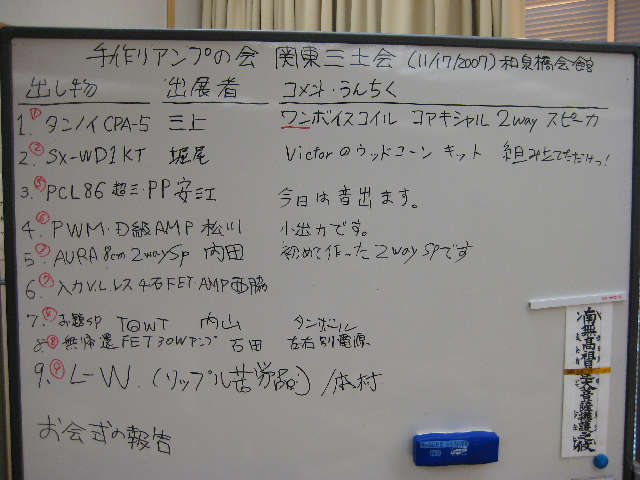 手作りアンプの会 関東三土会 (11/17/2007) 和泉橋会館
出し物 出展者 コメント・うんちく
1. ① タンノイ CPA-5 三上 ワンボイスコイル コアキシャル 2way スピーカ
2. ② SX-WD1KT 堀尾 Victorのウッドコーン キット 組み立てただけっ!
3. PCL86 超三・PP 安江 今日は音出ます。
4. PWM・D級AMP 松川 小出力です。
5. AURA 8cm 2way Sp 内田 初めて作った 2way SPです
6. 入力V.L.レス 4石FET AMP 西脇
7. お題SP TQWT 内山 ダンボール
8. ⑧ 無帰還FET 30Wアンプ 石田 左右別電源
9. ⑨ L-W. (リップル苦労話) / 本村
お会式の報告